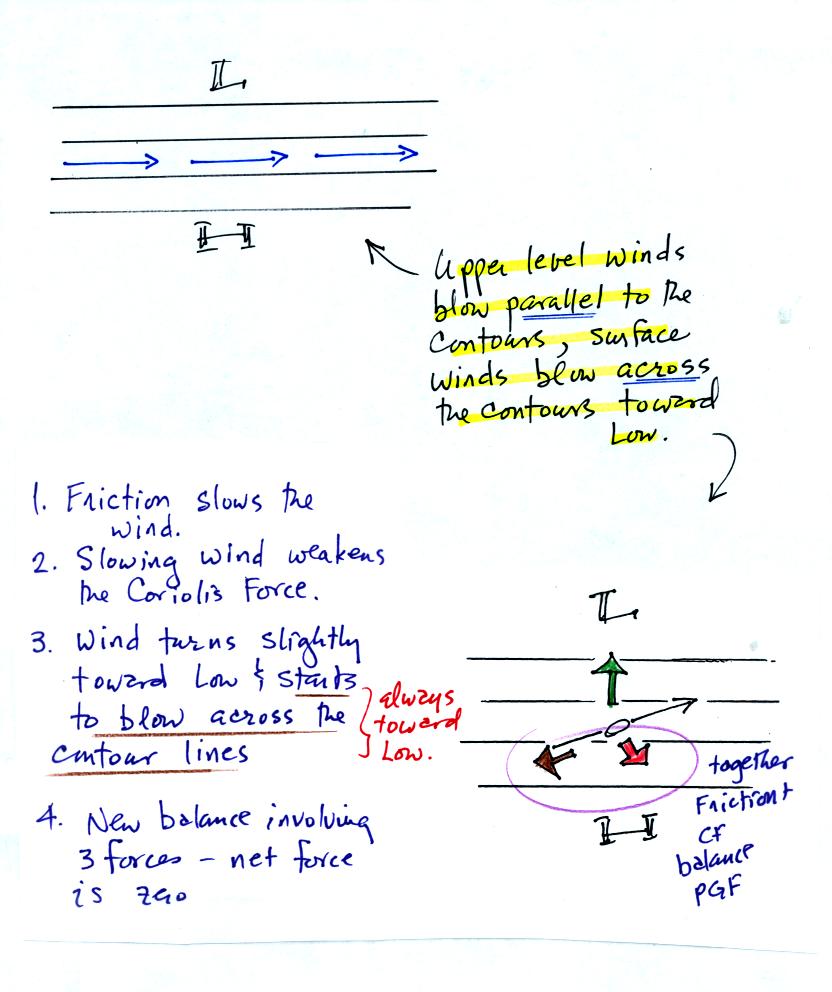 L
H
Upper level winds
blow parallel to the
contours, surface
winds blow across
the contours toward
Low.
1. Friction slows the
wind.
2. Slowing wind weakens
the Coriolis Force.
3. Wind turns slightly
toward Low & starts
to blow across the
contour lines
always
toward
Low.
4. New balance involving
3 forces - net force
is zero
L
H
together
Friction +
CF
balance
PGF